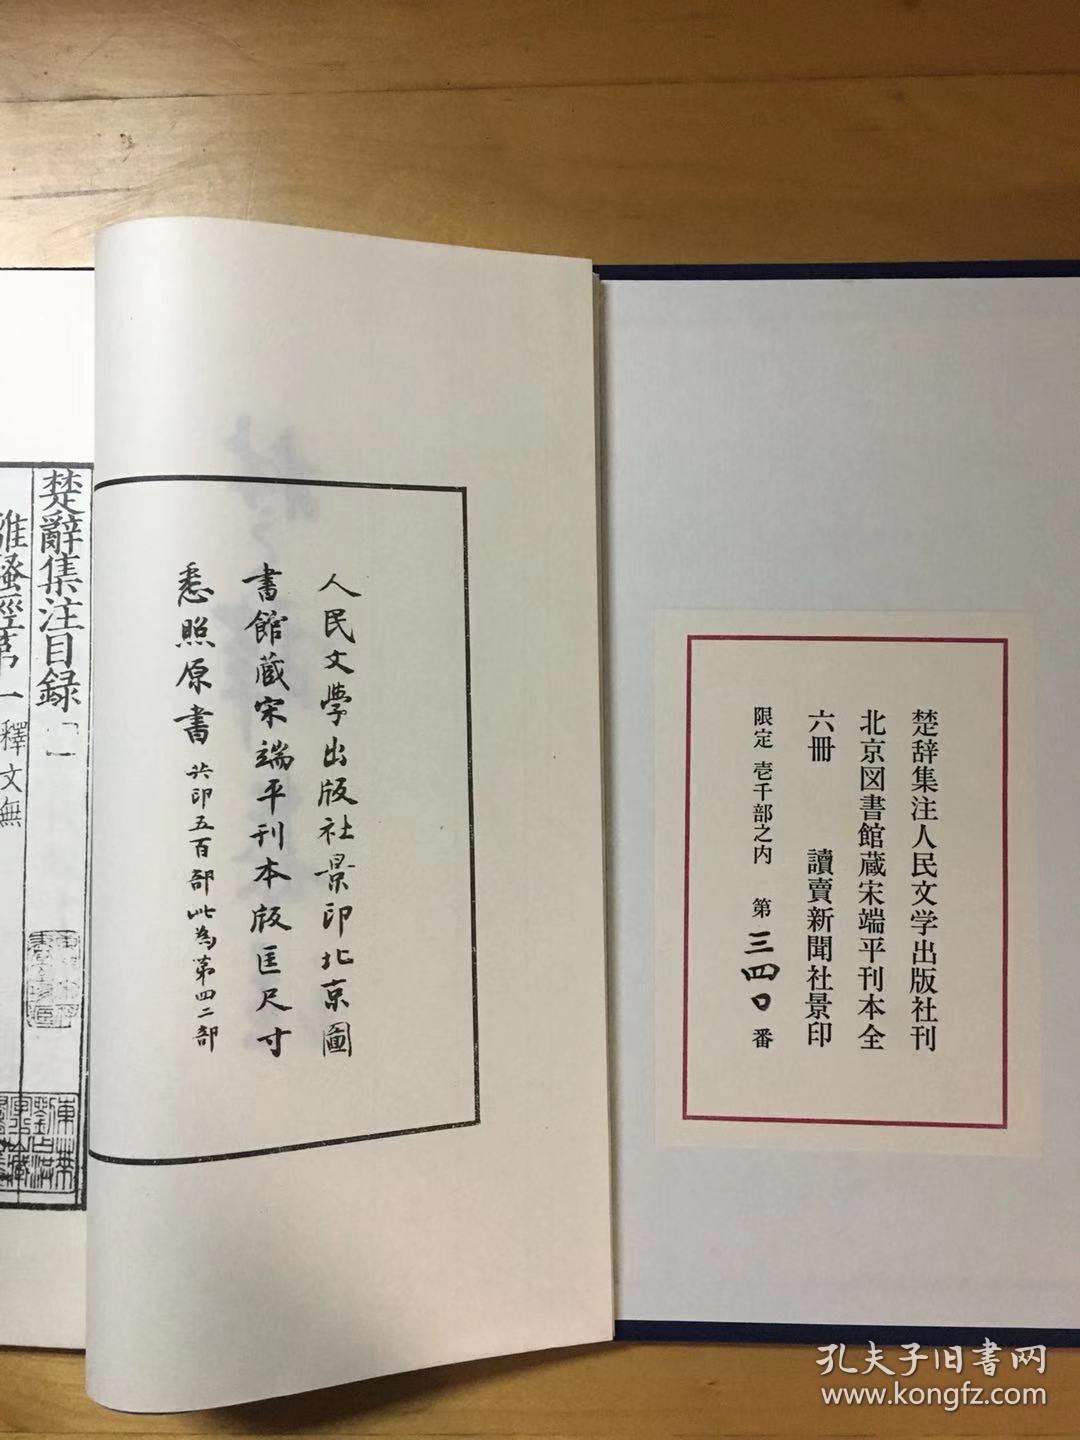 楚辞集注人民文学出版社刊
北京図書館蔵宋端平刊本全
六冊 讀賣新聞社景印
限定 壱千部之内 第 三四〇 番
人民文學出版社景印北京圖
書館蔵宋端平刊本版匡尺寸
悉照原書 共印五百部此為第四二部
楚辭集注目録
離騷經第一 釋文無
孔夫子旧书网
www.kongfz.com